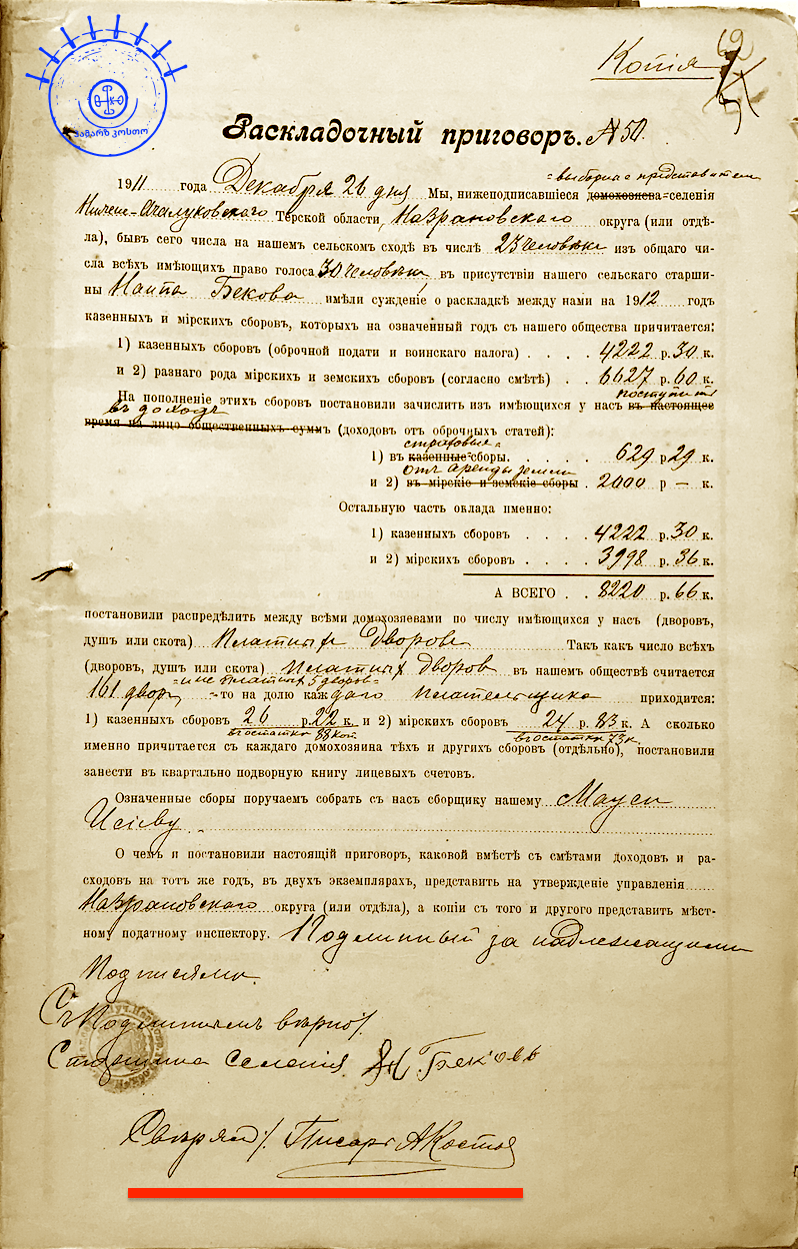 Копія
62
ჰამარზ კოსთო
Раскладочный приговоръ. № 50.
выборные представители
1911 года Декабря 26 дня Мы, нижеподписавшіеся домохозяева селенія
Нижне-Ачалуковскаго Терской области, Назрановскаго округа (или отдѣ-
ла), бывъ сего числа на нашемъ сельскомъ сходѣ въ числѣ 23 человѣкъ изъ общаго чи-
сла всѣхъ имѣющихъ право голоса 30 человѣкъ въ присутствіи нашего сельскаго старши-
ны Наипа Бекова имѣли сужденіе о раскладкѣ между нами на 1912 годъ
казенныхъ и мірскихъ сборовъ, которыхъ на означенный годъ съ нашего общества причитается:
1) казенныхъ сборовъ (оброчной подати и воинскаго налога) . . . . 4222 р. 30 к.
и 2) разнаго рода мірскихъ и земскихъ сборовъ (согласно смѣтѣ) . . 6627 р. 60 к.
На пополненіе этихъ сборовъ постановили зачислить изъ имѣющихся у насъ въ настоящее
поступить
въ доходъ
время на лицо общественныхъ суммъ (доходовъ отъ оброчныхъ статей):
страховые
1) въ казенные сборы . . . . . 629 р. 29 к.
отъ аренды земли
и 2) въ мірскіе и земскіе сборы . 2000 р — к.
Остальную часть оклада именно:
1) казенныхъ сборовъ . . . . 4222 р. 30 к.
и 2) мірскихъ сборовъ . . . . 3998 р. 36 к.
А ВСЕГО . . 8220 р. 66 к.
постановили распредѣлить между всѣми домохозяевами по числу имѣющихся у насъ (дворовъ,
душъ или скота) платныхъ дворовъ Такъ какъ число всѣхъ
(дворовъ, душъ или скота) платныхъ дворовъ въ нашемъ обществѣ считается
и не платныхъ 5 дворовъ
161 дворъ, то на долю каждаго плательщика приходится:
1) казенныхъ сборовъ 26 р. 22 к. и 2) мірскихъ сборовъ 24 р. 83 к. А сколько
въ остаткѣ 88 коп. въ остаткѣ 73 к.
именно причитается съ каждаго домохозяина тѣхъ и другихъ сборовъ (отдѣльно), постановили
занести въ квартально подворную книгу лицевыхъ счетовъ.
Означенные сборы поручаемъ собрать съ насъ сборщику нашему Мауси
Исіеву
О чемъ и постановили настоящій приговоръ, каковой вмѣстѣ съ смѣтами доходовъ и ра-
сходовъ на тотъ же годъ, въ двухъ экземплярахъ, представить на утвержденіе управленія
Назрановскаго округа (или отдѣла), а копіи съ того и другого представить мѣст-
ному податному инспектору. Подлинный за надлежащими
подписями.
Съ подлиннымъ вѣрно:
Старшина селенія Бековъ
Свѣрялъ: Писарь А Костоя